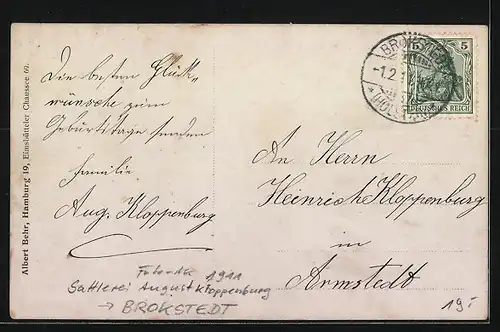 Die besten Glück-
wünsche zum
Geburtstage senden
Familie
Aug. Kloppenburg
An Herrn
Heinrich Kloppenburg
in
Armstedt
Albert Behr, Hamburg 19, Eimsbütteler Chaussee 60.
5 5
DEUTSCHES REICH
BROKSTEDT
-1.2.
(HOLST
Foto-Ak 1911
Sattlerei August Kloppenburg
→ BROKSTEDT
19,-